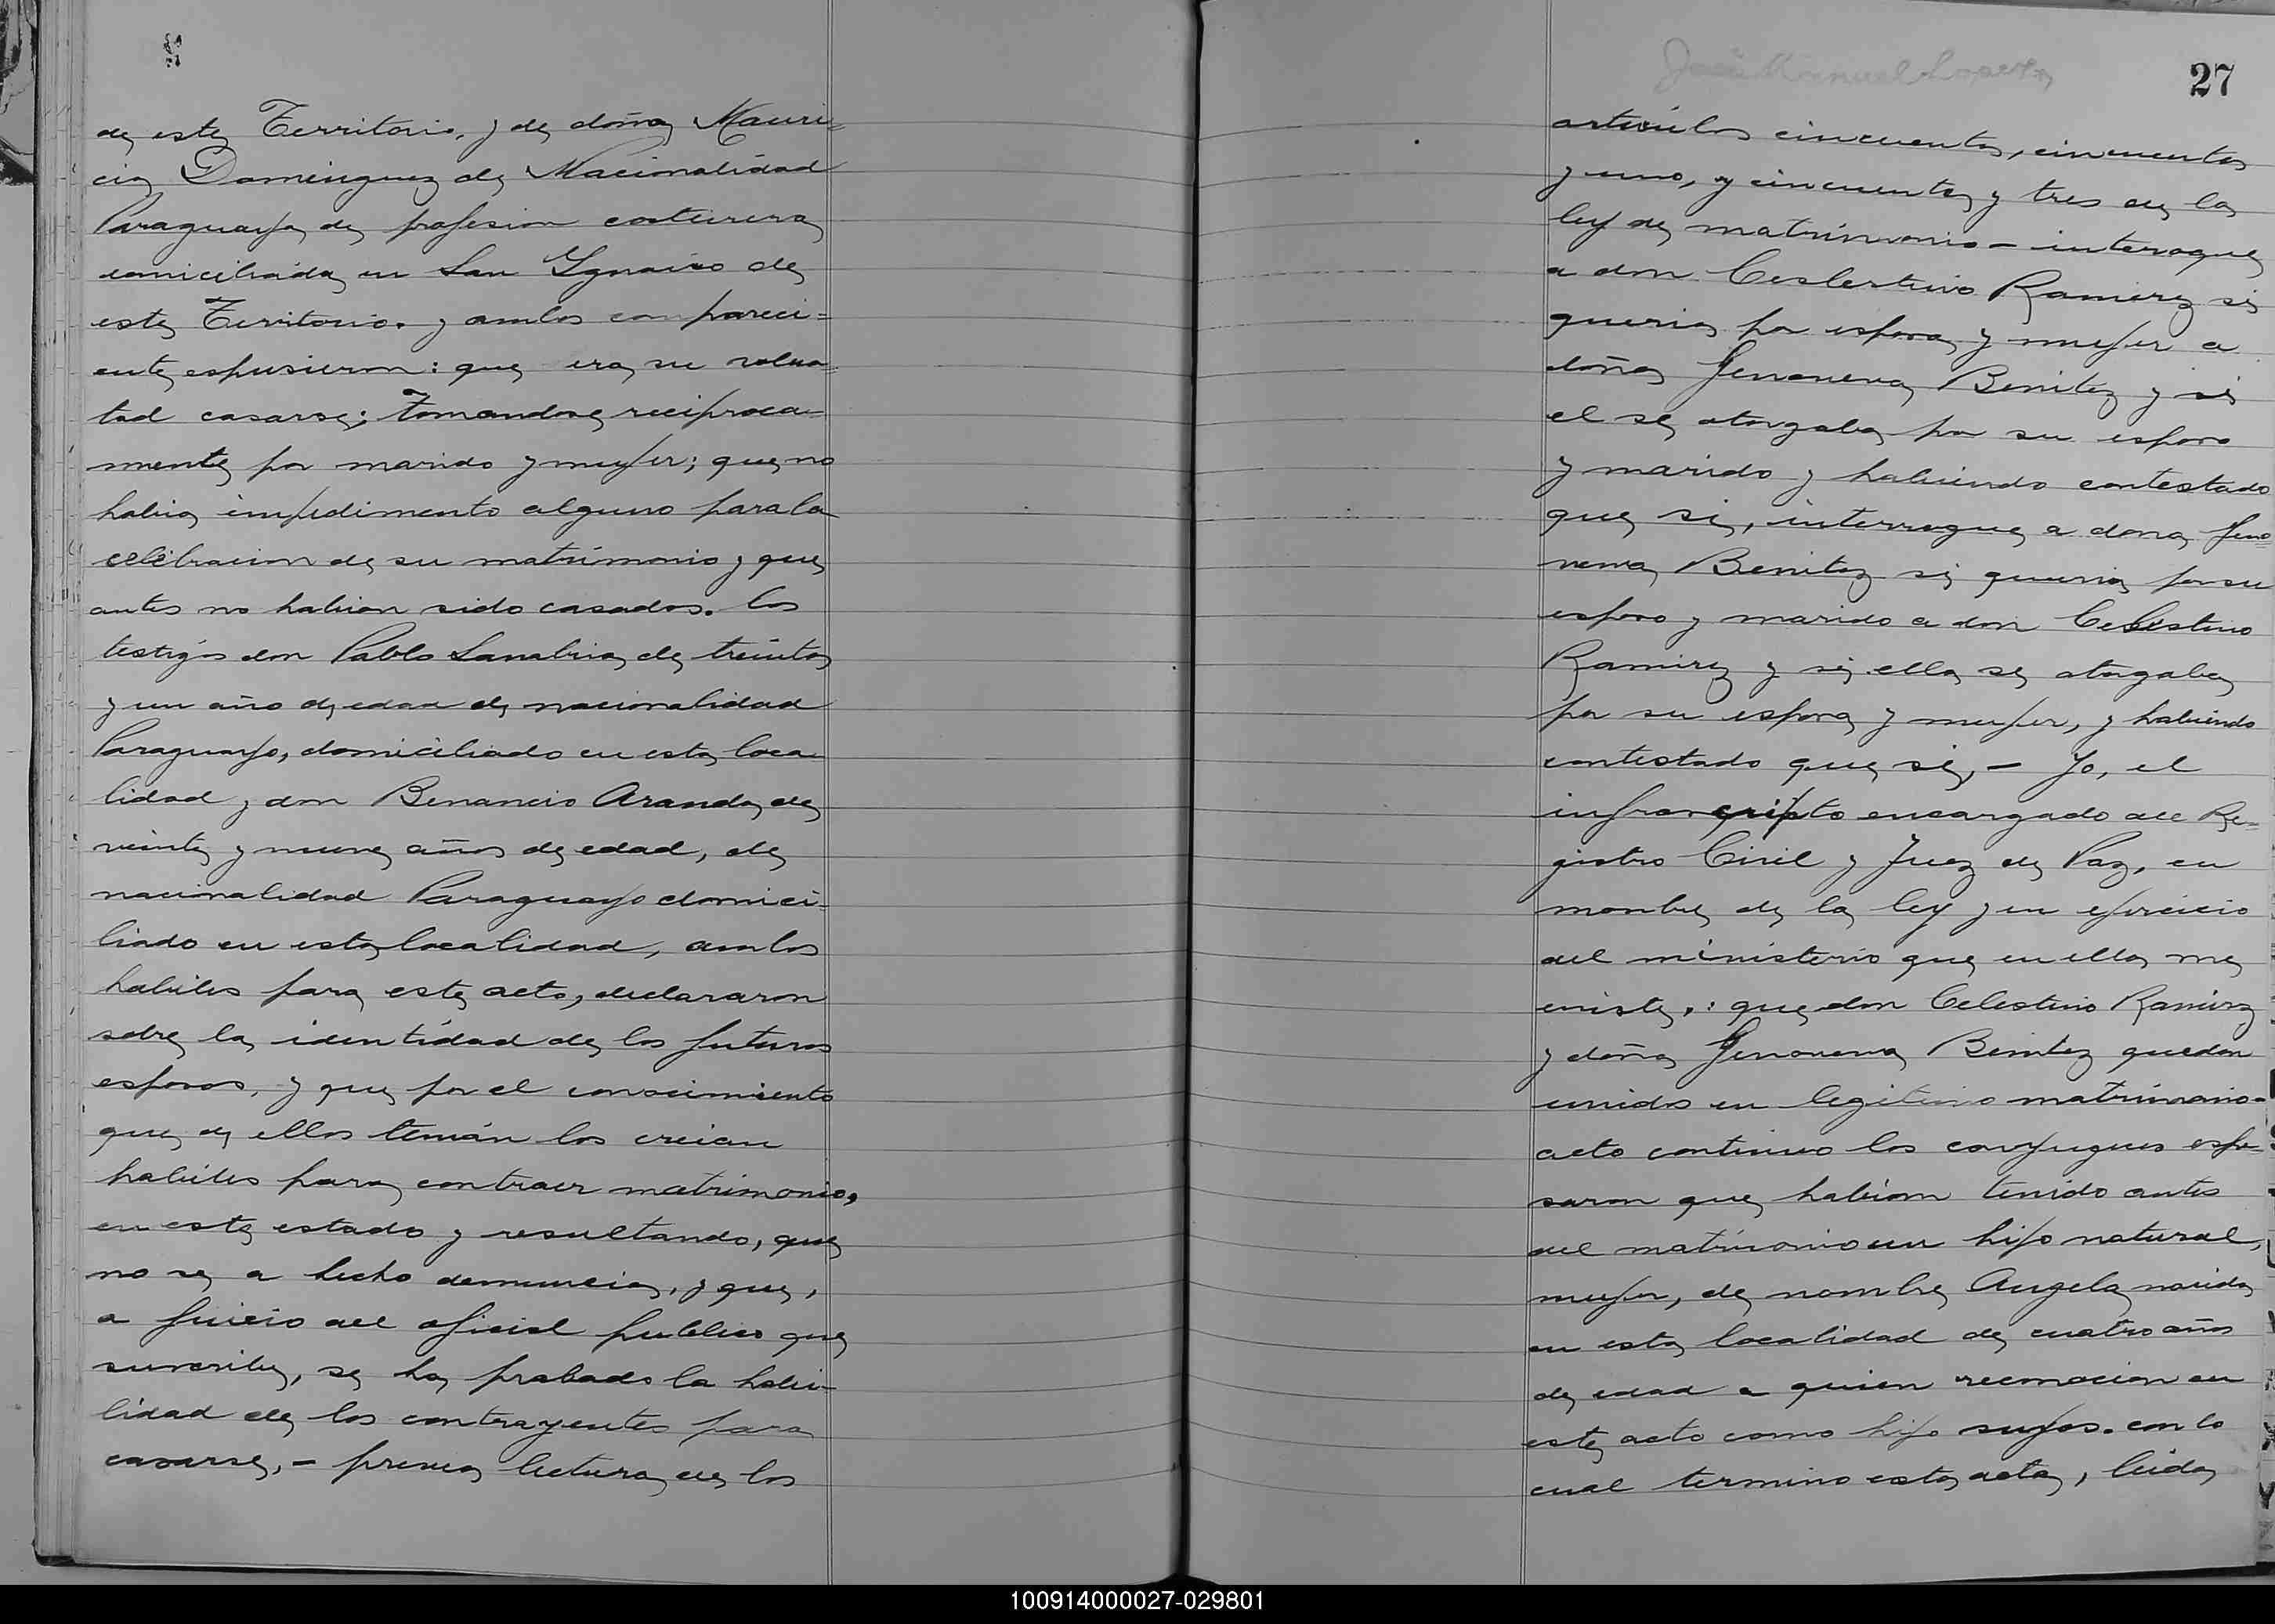 de este Territorio, y de doña Mauri=
cia Dominguez de Nacionalidad
Paraguaya, de profesion costurera
domiciliada en San Ygnacio de
este Territorio. y ambos compareci=
ente espusieron: que era su volun
tad casarse; Tomandose reciproca=
mente por marido y mujer; que no
habia impedimento alguno para la
celebracion de su matrimonio y que
antes no habian sido casados. los
testigos don Pablo Sanabria, de treinta
y un año de edad de nacionalidad
Paraguayo, domiciliado en esta loca
lidad y don Benancio Aranda, de
veinte y nueve años de edad, de
nacionalidad Paraguayo domici=
liado en esta localidad, ambos
habiles para este acto, declararon
sobre la identidad de los futuros
esposos, y que por el conocimiento
que de ellos tenian los creian
habiles para contraer matrimonio,
en este estado y resultando, que
no se a hecho denuncia, y que,
a juicio del oficial publico que
suscribe, se ha probado la habi-
lidad de los contrayentes para
casarse,- previa lectura de los
José Manuel
27
articulos cincuenta, cincuenta
y uno, y cincuenta y tres de la
ley de matrimonio - interogue
a don Ceslestino Ramirez si
queria por esposa y mujer a
doña Genoveva Benitez y si
el se otorgaba por su esposo
y marido y habiendo contestado
que si, interrogue a dona Geno=
veva Benitez si queria por su
esposo y marido a don Celestino
Ramirez y si ella se otorgaba
por su esposa y mujer, y habiendo
contestado que si,- Yo, el
infrascripto encargado del Re=
gistro Civil y Juez de Paz, en
nombre de la ley y en ejercicio
del ministerio que en ella me
eniste,: que don Celestino Ramirez
y doña Genoveva Benitez quedan
unidos en legitimo matrimonio-
acto continuo los conyugues espre-
saron que habian tenido antes
del matrimonio un hijo natural,
mujer, de nombre Angela nacida
en esta localidad de cuatro años
de edad a quien reconocian en
este acto como hijo suyos. con lo
cual termino esta acta, leida
100914000027-029801